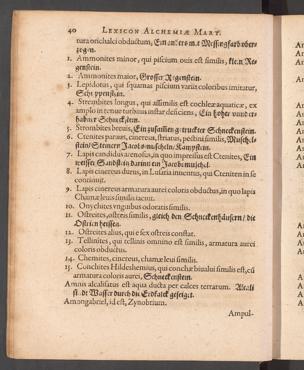 40 LEXICON ALCHEMIÆ MART.
tura orichalci obductum, Ein anders mit Messingfarb uberzogen.
1. Ammonites minor, qui piscium ouis est similis, klein Regenstein.
2. Ammonites maior, Grosser Rogenstein.
3. Lepidotus, qui squamas piscium variis coloribus imitatur, Schuppenstein.
4. Strombites longus, qui assimilis est cochleæ aquaticæ, ex
amplo in tenue turbinis instar desciens, Ein hoher
Schneckstein.
5. Strombites breuis, Ein Schneckenstein.
6. Ctenites paruus, cinereus, striatus, pectini similis, Muschelstein
7. Lapis candidus arenosus, in quo impressus est Ctenites, Ein
weisser Sandstein darinn ein Jacobsmuschel.
8. Lapis cinereus durus, in Lusatia inuentus, qui Cteniten in se
continuit.
9. Lapis cinereus armatura aurei coloris obductus, in quo lapis
Chamæ leuis similis iacuit.
10. Onychites vnguibus odoratis similis.
11. Ostreites, ostreis similis, gleich den Schneckenhäusern / die
12. Ostreites alius, qui ex ostreis constat.
13. Tellinites, qui tellinis omnino est similis, armatura aurei
coloris obductus.
14. Chemites, cinereus, chamæ leui similis.
15. Conchites Hildeshemius, qui conchæ biualui similis est, cū
armatura coloris aurei, Schneckenstein.
Amnis alcalisatus est aqua ducta per calces terrarum.
Wasser durch die Erdkalck
Amongabriel, id est, Zynobrium.
Ampul-